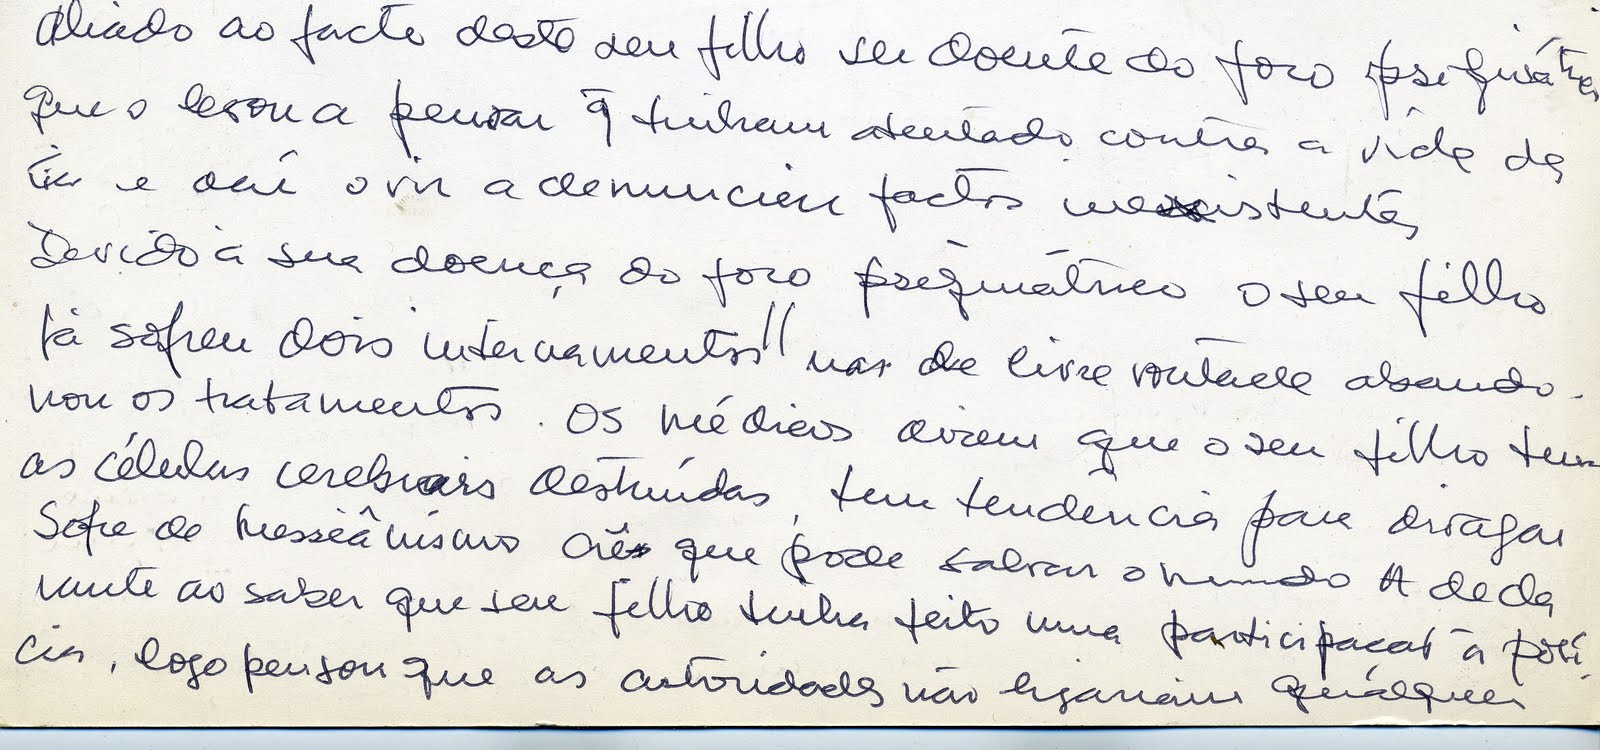 Aliado ao facto deste seu filho ser doente do foro psiquiátrico
que o levou a pensar q̃ tinham atentado contra a vida da
tia e daí o vir a denunciar factos inexistentes
Devido à sua doença do foro psiquiátrico o seu filho
já sofreu dois internamentos" mas de livre vontade abando-
nou os tratamentos. Os médicos dizem que o seu filho tem
as células cerebrais destruídas, tem tendência para divagar
Sofre de Messiânismo crê que pode salvar o mundo A decla
rante ao saber que seu filho tinha feito uma participação à polí-
cia, logo pensou que as autoridades não ligariam qualquer